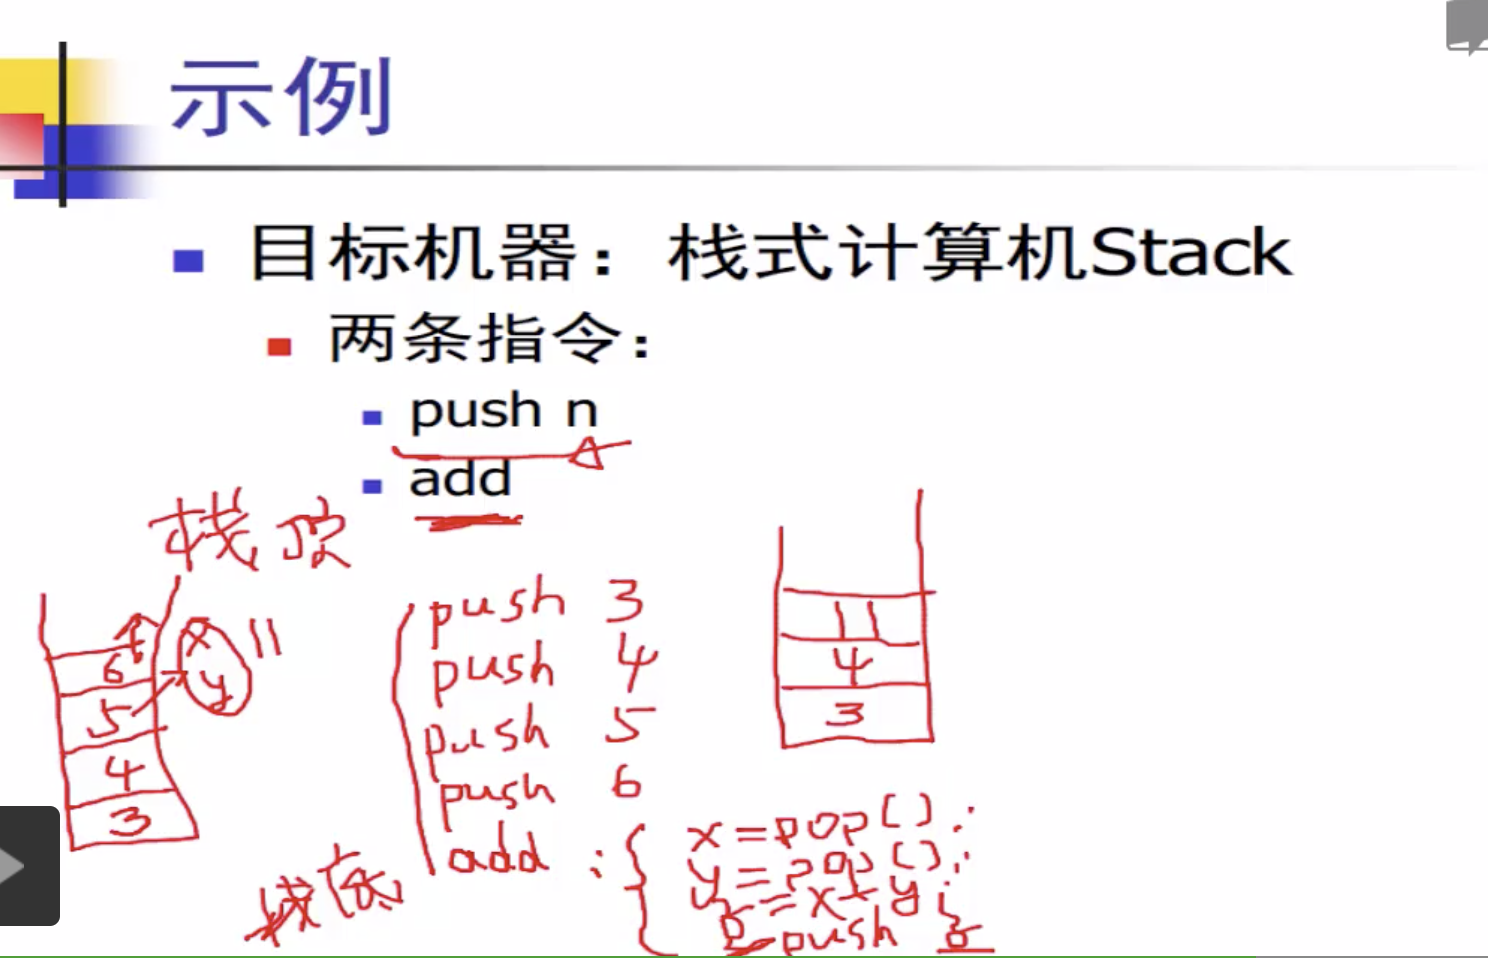 示例
目标机器：栈式计算机Stack
两条指令：
push n
add
栈顶
6
5
4
3
x
y
11
push 3
push 4
push 5
push 6
add : {
x = pop();
y = pop();
z = x + y;
push z
11
4
3
栈底